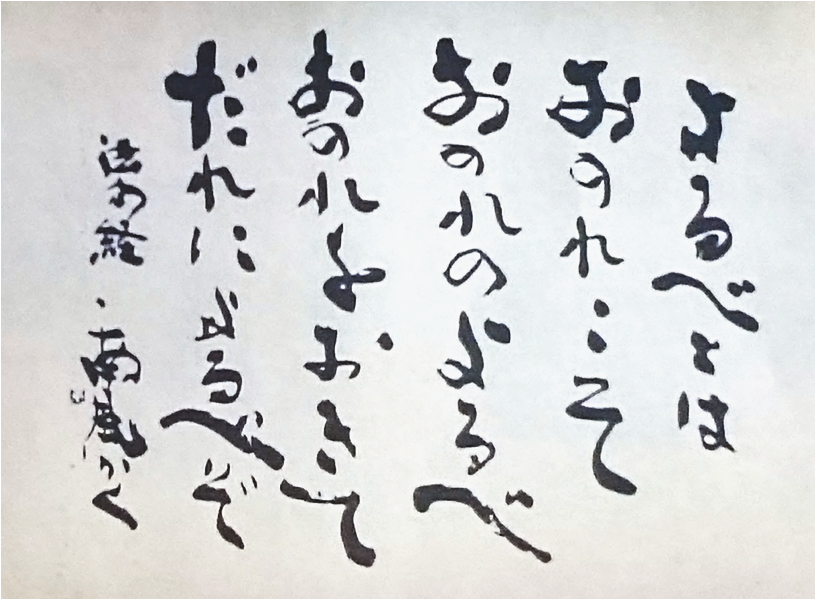 よるべとは
おのれこそ
おのれのよるべ
おのれをおきて
だれによるべぞ
法句経・南風かく